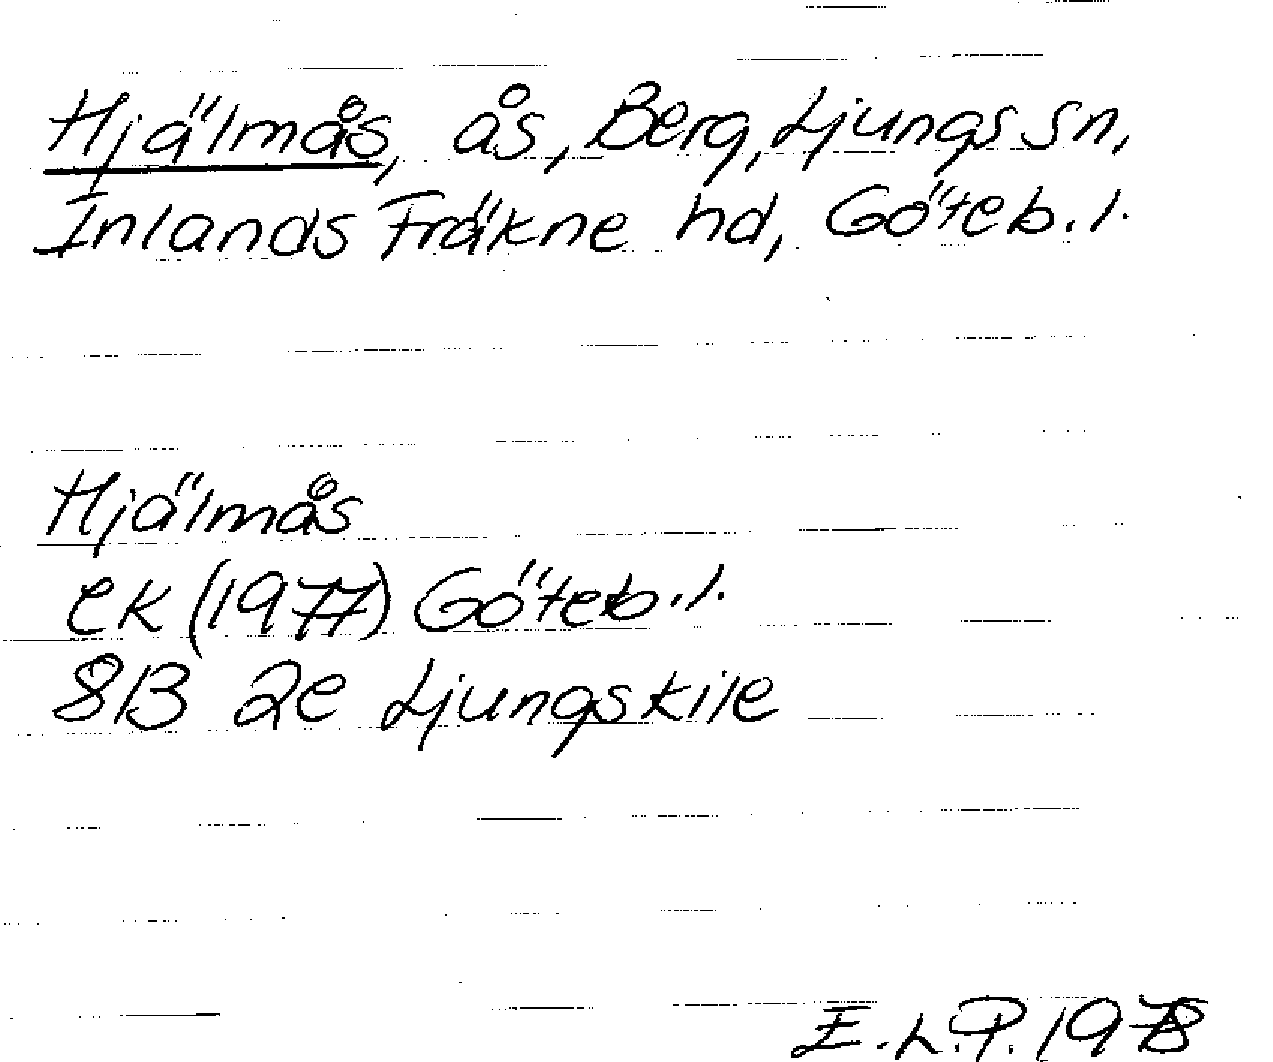 Hjälmås, ås, Berg, Ljungs sn,
Inlands Fräkne hd, Göteb.l.
Hjälmås
ek (1977) Göteb.l.
8B 2e Ljungskile
E.L.P. 1978